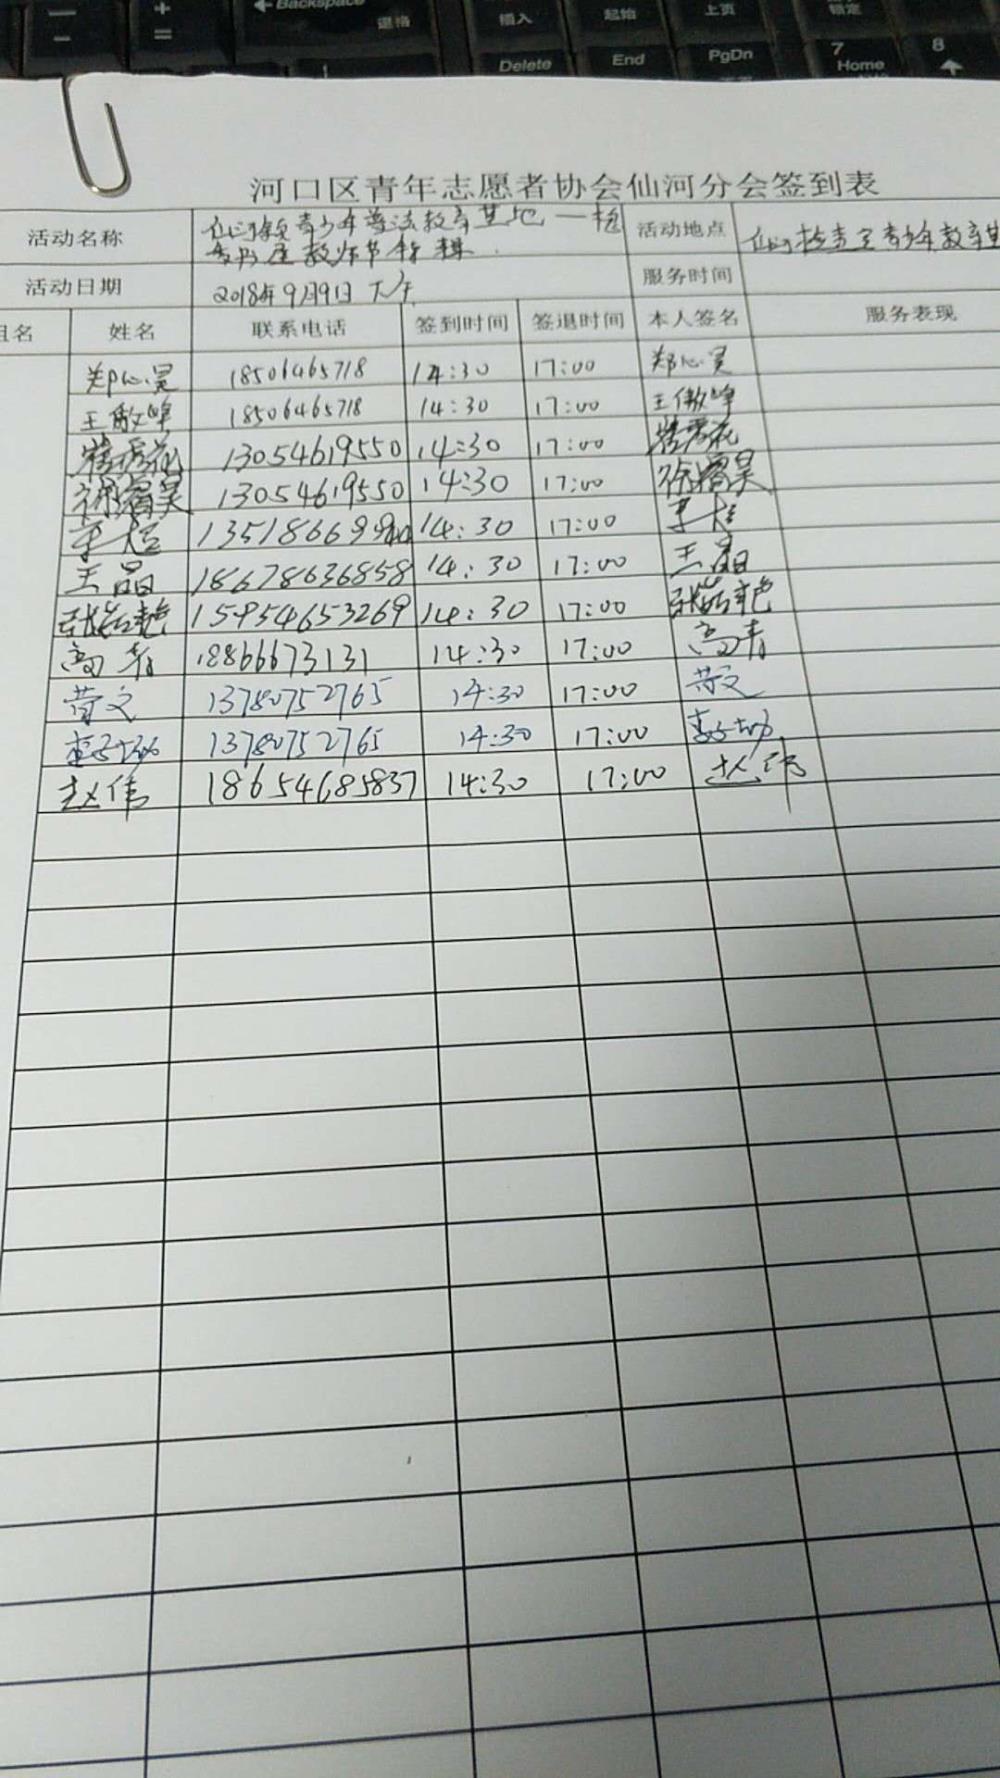 Backspace
退格
插入
起始
上页
锁定
+
=
Delete
End
PgDn
7
Home
8
河口区青年志愿者协会仙河分会签到表
活动名称 仙河镇青少年普法教育基地一检 活动地点 仙河检查室青少年教育基
教师节特辑
活动日期 2018年9月9日 下午 服务时间
组名 姓名 联系电话 签到时间 签退时间 本人签名 服务表现
郑心昊 18506465718 14:30 17:00 郑心昊
王傲峰 18506465718 14:30 17:00 王傲峰
13054619550 14:30 17:00
徐 昊 13054619550 14:30 17:00 徐 昊
14:30 17:00
王晶 18678636858 14:30 17:00 王晶
张 艳 159546653269 14:30 17:00 张 艳
高青 18866673131 14:30 17:00 高青
文 13780752765 14:30 17:00 文
李子 13780752765 14:30 17:00 李子
赵伟 18654685837 14:30 17:00 赵伟